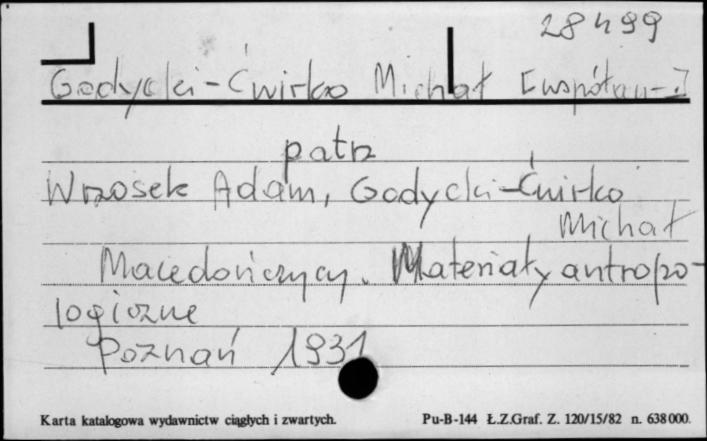 28499
Godycki-Ćwirko Michał [współau-]
patrz
Wrzosek Adam, Godycki-Ćwirko
Michał
Macedończycy. Materiały antropo-
logiczne
Poznań 1931
Karta katalogowa wydawnictw ciągłych i zwartych. Pu-B-144 Ł.Z.Graf. Z. 120/15/82 n. 638000.